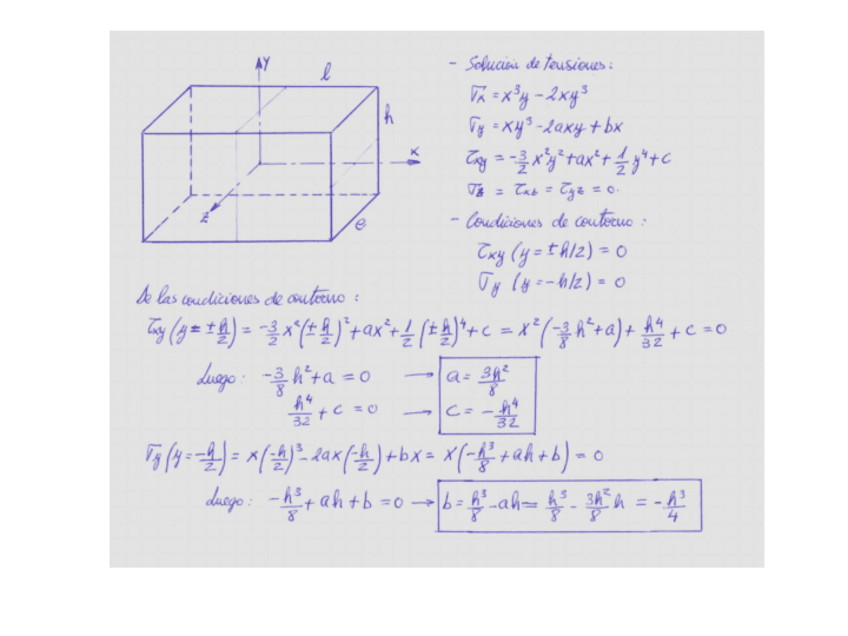 y
l
h
x
z
e
- Solución de tensiones:
σx = x³y - 2xy³
σy = xy³ - 2axy + bx
τxy = -3/2 x²y² + ax² + 1/2 y⁴ + c
σz = τxz = τyz = 0.
- Condiciones de contorno:
τxy (y = ±h/2) = 0
σy (y = -h/2) = 0
De las condiciones de contorno:
τxy (y = ±h/2) = -3/2 x² (±h/2)² + ax² + 1/2 (±h/2)⁴ + c = x² (-3/8 h² + a) + h⁴/32 + c = 0
Luego: -3/8 h² + a = 0 → a = 3h²/8
h⁴/32 + c = 0 → c = -h⁴/32
σy (y = -h/2) = x (-h/2)³ - 2ax (-h/2) + bx = x (-h³/8 + ah + b) = 0
Luego: -h³/8 + ah + b = 0 → b = h³/8 - ah = h³/8 - 3h²/8 h = -h³/4